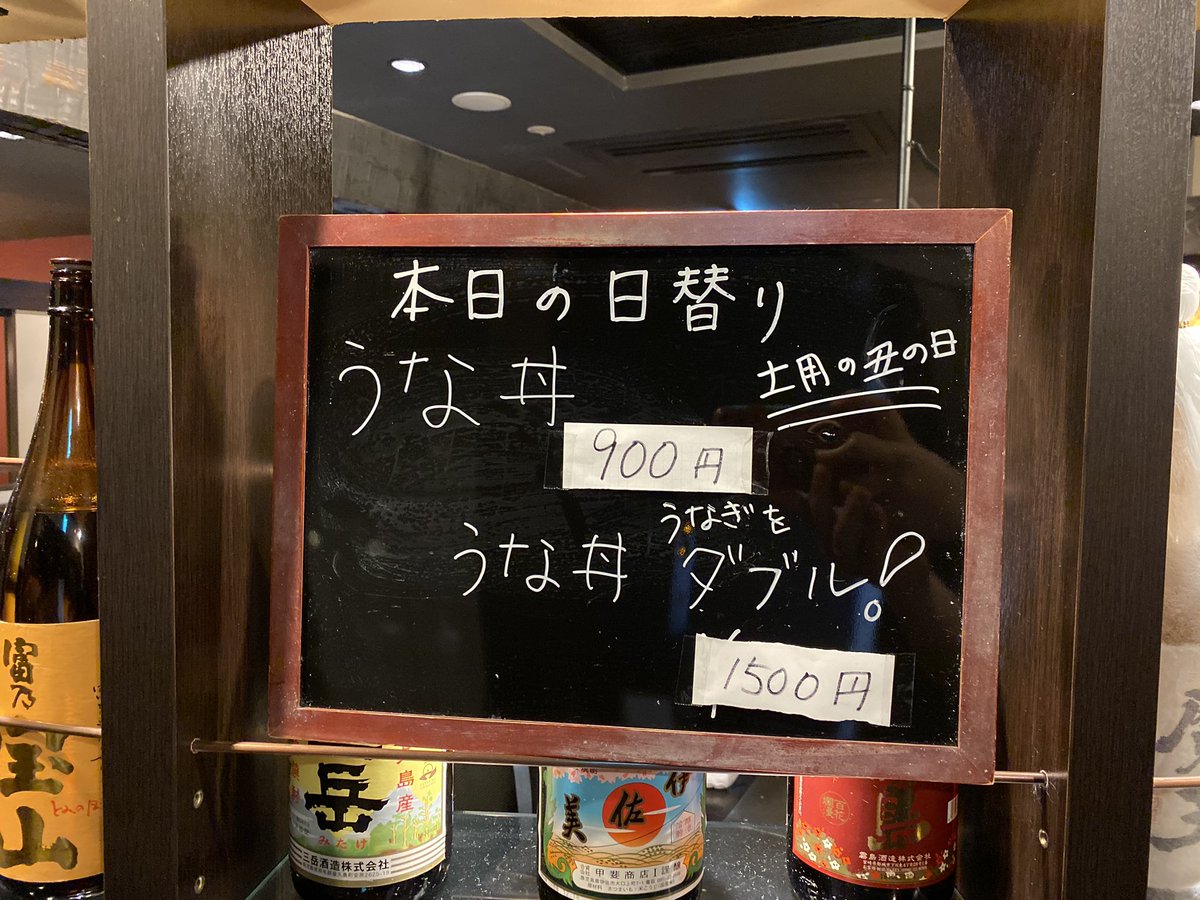 本日の日替り
うな丼
土用の丑の日
900円
うな丼 うなぎをダブル!
1500円
富乃宝山
岳
みたけ
島産
三岳酒造株式会社
伊佐美
甲斐商店
百花
霧島酒造株式会社